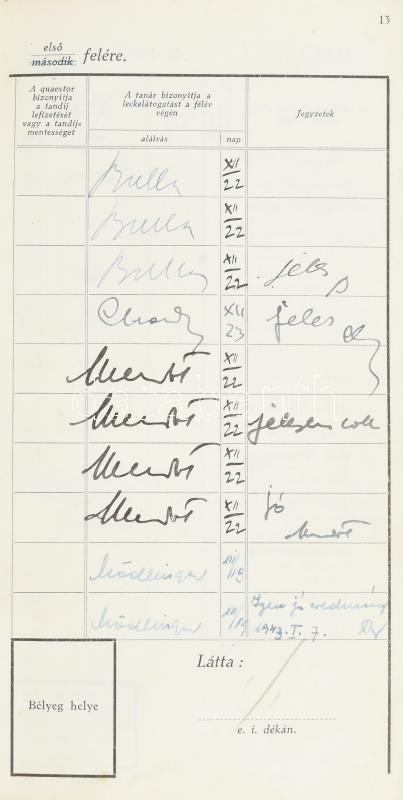 13
első
második felére.
A quaestor bizonyítja a tandíj lefizetését vagy a tandíj-mentességet
A tanár bizonyítja a leckelátogatást a félév végén
Jegyzetek
aláírás nap
Bulla XII/22
Bulla XII/22
Bulla XII/22 jeles
XII/23 jeles
Mendöl XII/22
Mendöl XII/22 jelesen coll
Mendöl XII/22
Mendöl XII/22 jó
Mendöl
Mödlinger XII/19
Mödlinger XII/19 Igen jó eredmény
1943. I. 7.
Látta :
Bélyeg helye
e. i. dékán.